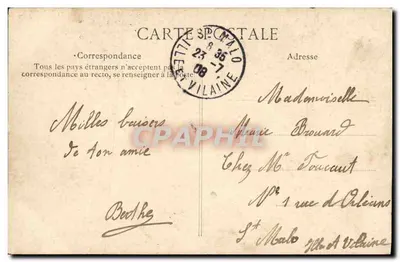 CARTE POSTALE
Correspondance
Tous les pays étrangers n'acceptent pas la
correspondance au recto, se renseigner à la Poste
Adresse
ST MALO
8 35
23 -7
08
ILLE ET VILAINE
Milles baisers
de ton amie
Berthe
Mademoiselle
Marie Brouard
Chez Mr Toucaut
No 1 rue d'Orléans
St Malo Ille et Vilaine
CPARAMA